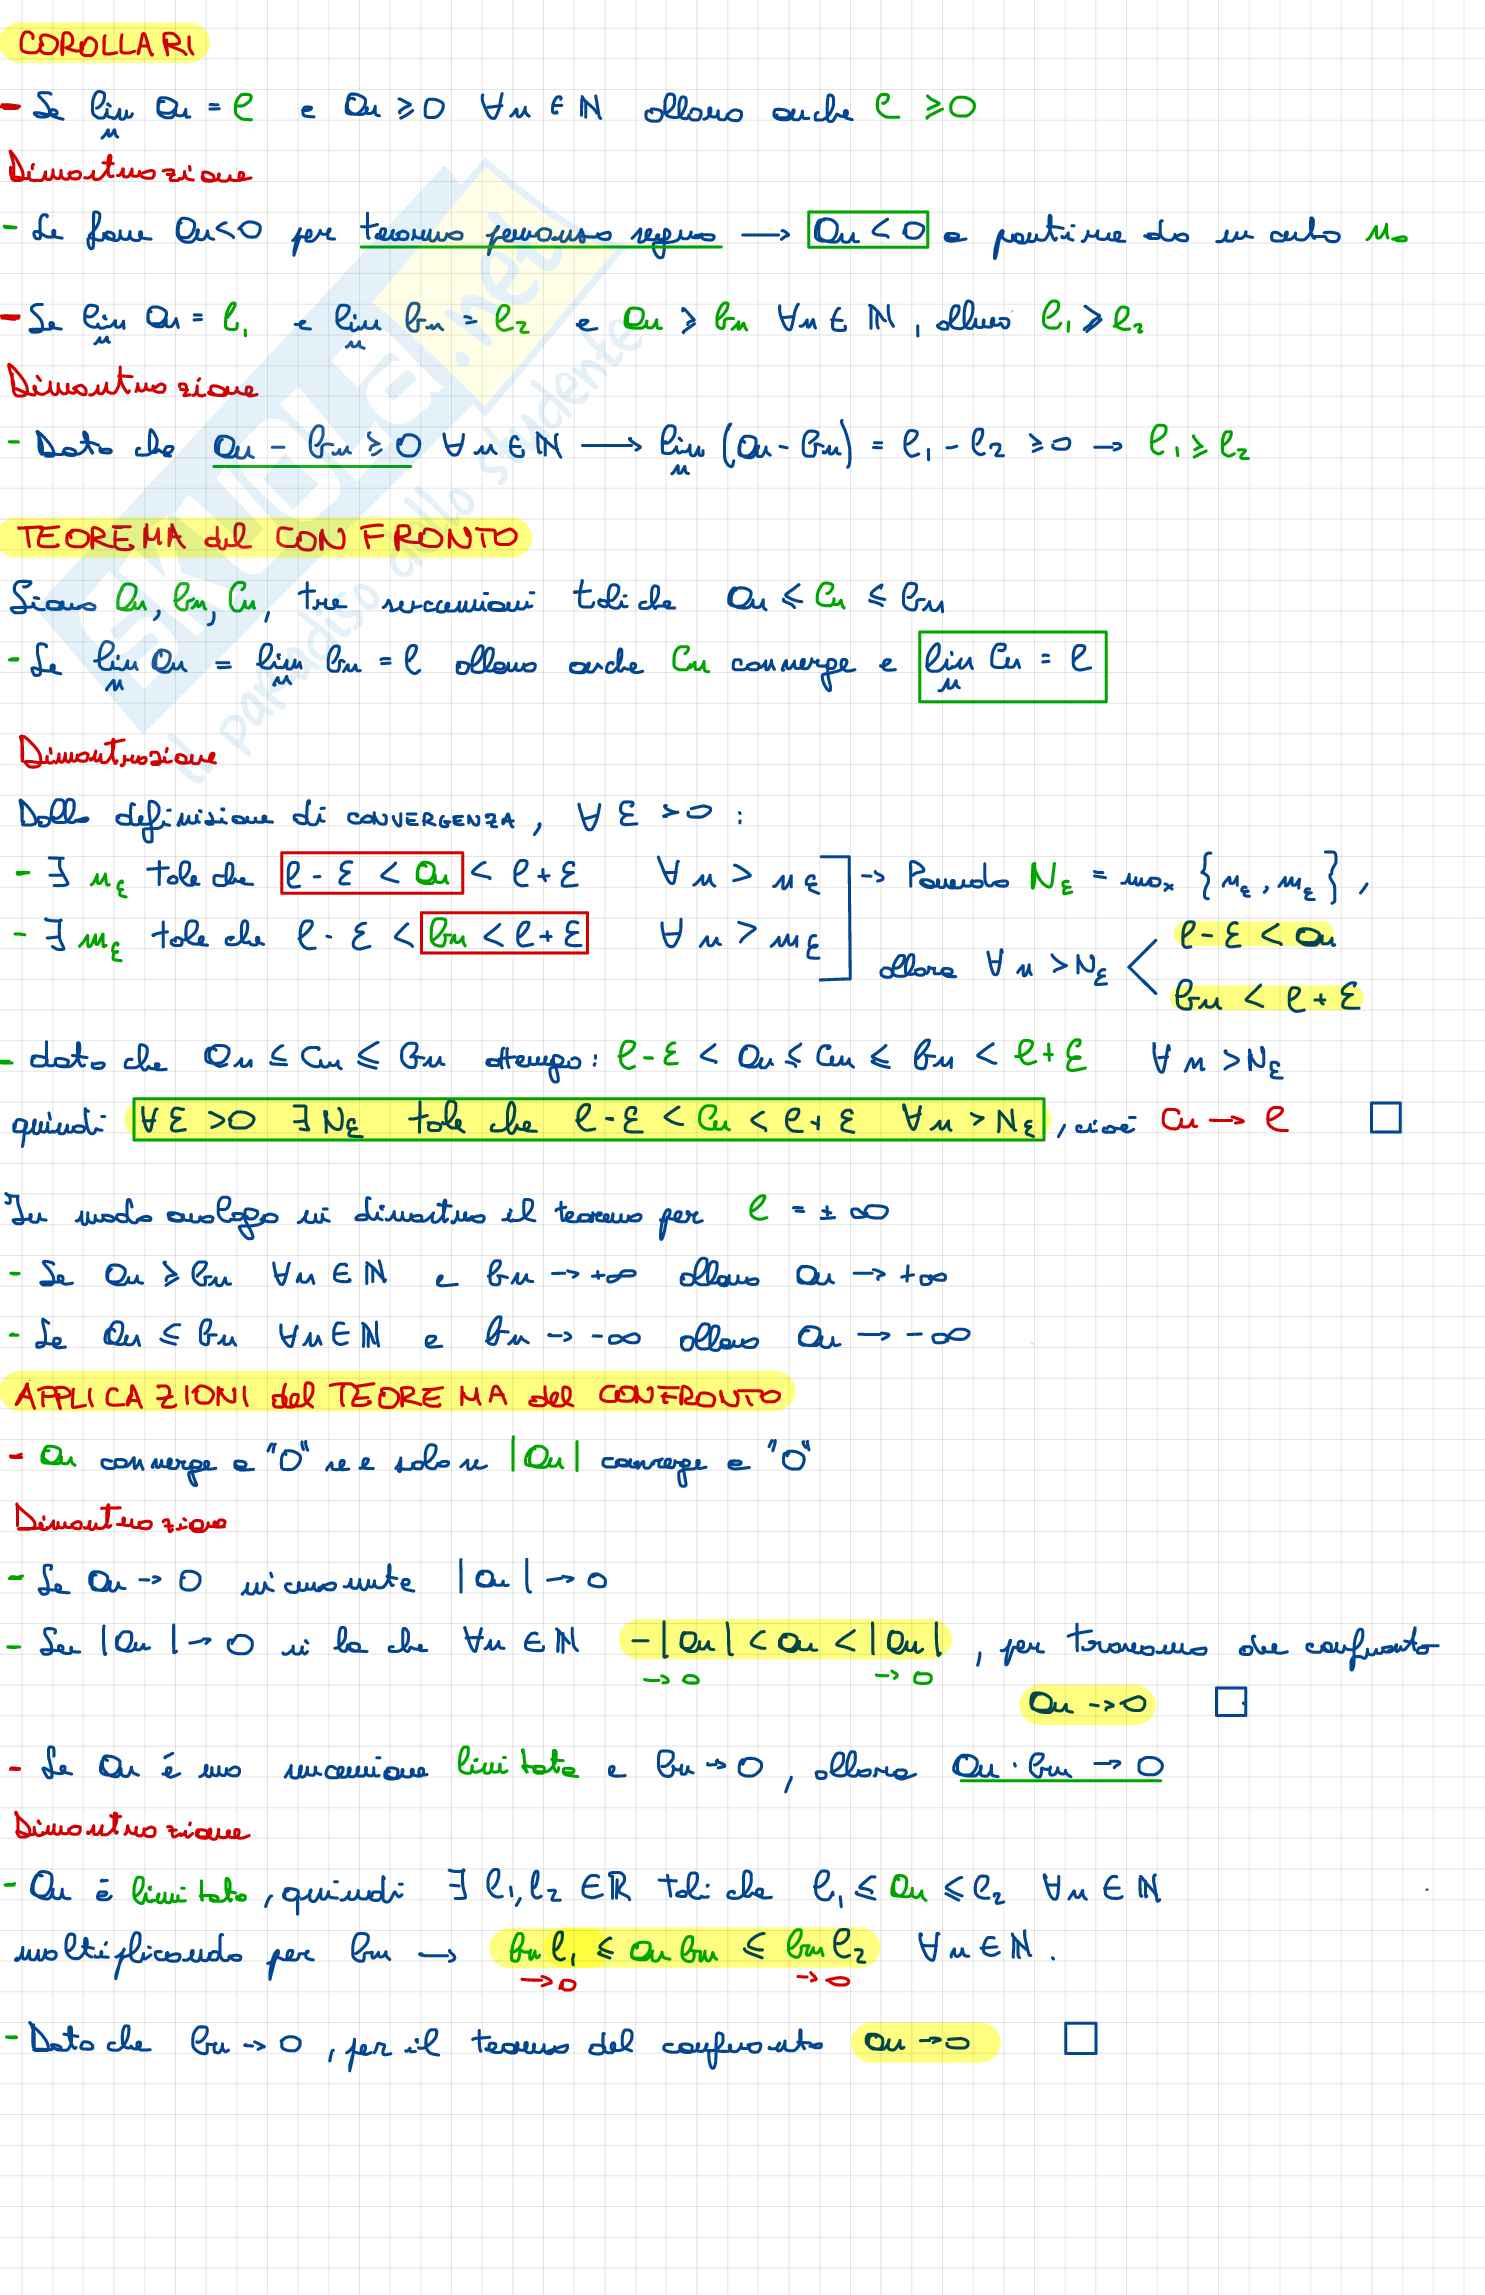 COROLLARI
- Se lim an = l e an ≥ 0 ∀n ∈ ℕ allora anche l ≥ 0
n
Dimostrazione
- Se fosse an<0 per teorema permanenza segno → an < 0 a partire da un certo n₀
- Se lim an = l₁ e lim bn = l₂ e an ≥ bn ∀n ∈ ℕ, allora l₁ ≥ l₂
n n
Dimostrazione
- Dato che an - bn ≥ 0 ∀n ∈ ℕ → lim (an - bn) = l₁ - l₂ ≥ 0 → l₁ ≥ l₂
n
TEOREMA del CONFRONTO
Siano an, bn, cn, tre successioni tali che an ≤ cn ≤ bn
- Se lim an = lim bn = l allora anche cn converge e lim cn = l
n n n
Dimostrazione
Dalla definizione di CONVERGENZA, ∀ ε > 0 :
- ∃ nε tale che l - ε < an < l + ε ∀ n > nε → Ponendo Nε = max {nε, mε},
- ∃ mε tale che l - ε < bn < l + ε ∀ n > mε
allora ∀ n > Nε < l - ε < an
bn < l + ε
- dato che an ≤ cn ≤ bn ottengo: l - ε < an ≤ cn ≤ bn < l + ε ∀ n > Nε
quindi ∀ ε > 0 ∃ Nε tale che l - ε < cn < l + ε ∀ n > Nε, cioè cn → l □
In modo analogo si dimostra il teorema per l = ± ∞
- Se an ≥ bn ∀n ∈ ℕ e bn → +∞ allora an → +∞
- Se an ≤ bn ∀n ∈ ℕ e bn → -∞ allora an → -∞
APPLICAZIONI del TEOREMA del CONFRONTO
- an converge a "0" se e solo se |an| converge a "0"
Dimostrazione
- Se an → 0 sicuramente |an| → 0
- Se |an| → 0 si ha che ∀n ∈ ℕ -|an| < an < |an|, per teorema del confronto
→ 0 → 0
an → 0 □
- Se an é una successione limitata e bn → 0, allora an · bn → 0
Dimostrazione
- an è limitata, quindi ∃ l₁, l₂ ∈ ℝ tali che l₁ ≤ an ≤ l₂ ∀n ∈ ℕ
moltiplicando per bn → bn l₁ ≤ an bn ≤ bn l₂ ∀n ∈ ℕ.
→ 0 → 0
- Dato che bn → 0, per il teorema del confronto an → 0 □
SKUOLA.net
il paradiso dello studente